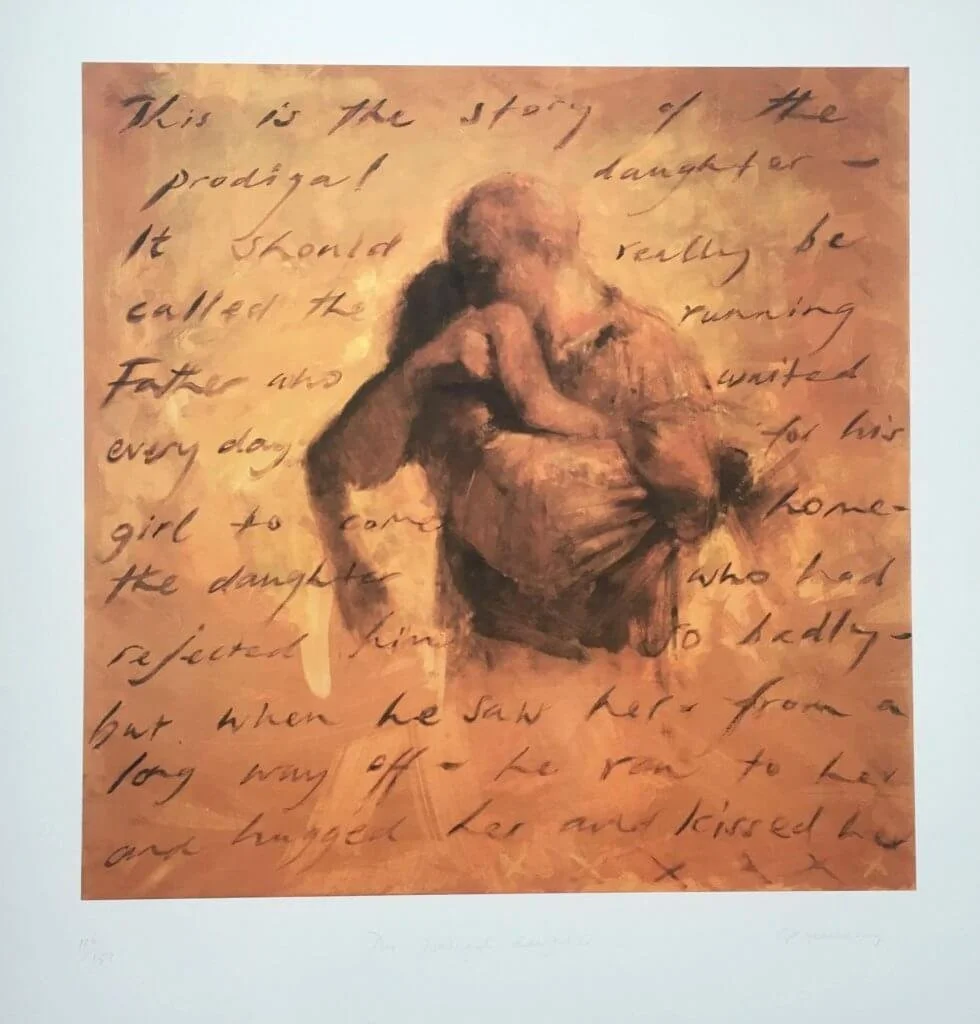 This is the story of the
prodigal daughter -
It should really be
called the running
Father who waited
every day for his
girl to come home-
the daughter who had
rejected him so badly-
but when he saw her - from a
long way off - he ran to her
and hugged her and kissed her
x x x x
The prodigal daughter